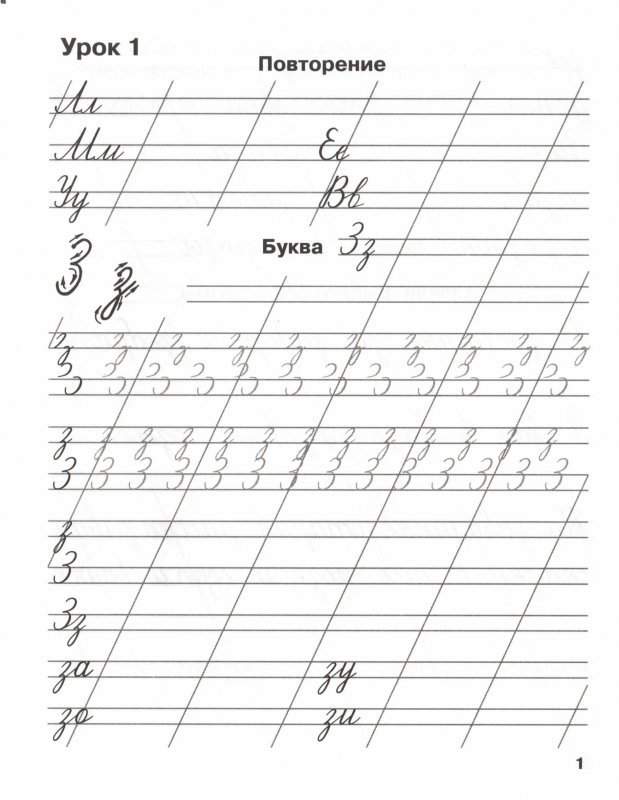 Урок 1
Повторение
Лл
Мм Ее
Уу Вв
Буква Зз
З з
з з з з з з з з з з
З З З З З З З З З З З З
з з з з з з з з з з з з з
З З З З З З З З З З З З З З
з
З
Зз
за зу
зо зи
1